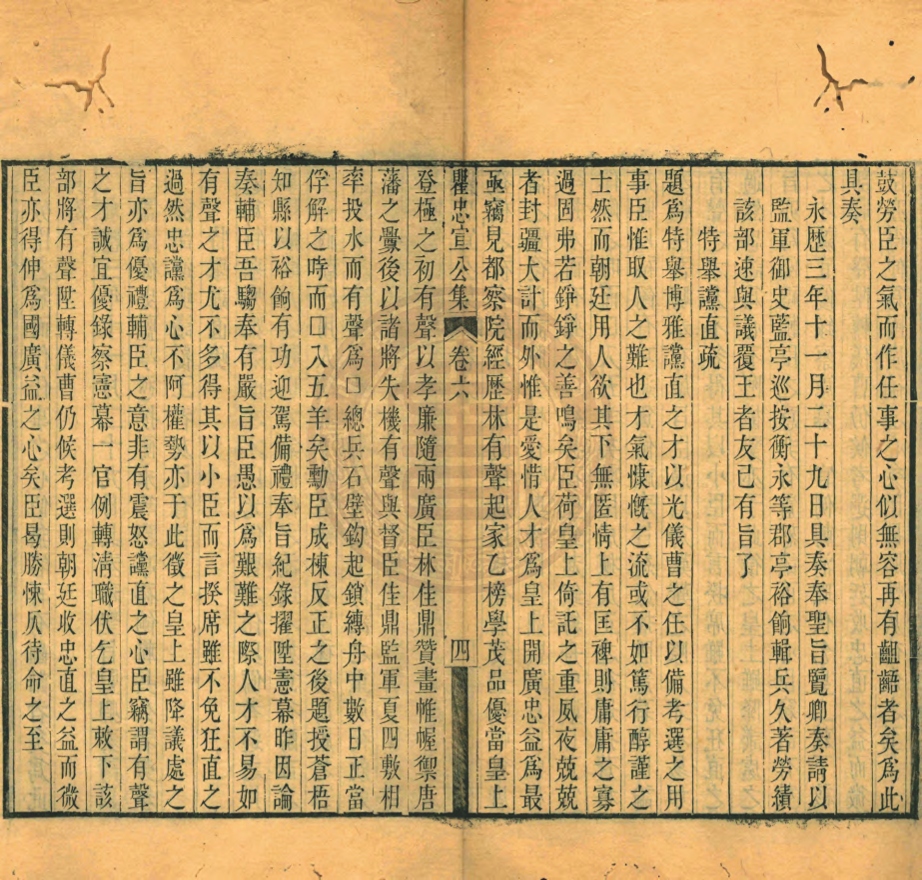 鼓勞臣之氣而作任事之心似無容再有齟齬者矣爲此
具奏
永歷三年十一月二十九日具奏奉聖旨覽卿奏請以
監軍御史藍亭巡按衡永等郡亭裕餉輯兵久著勞績
該部速與議覆王者友已有旨了
特舉讜直疏
題爲特舉博雅讜直之才以光儀曹之任以備考選之用
事臣惟取人之難也才氣慷慨之流或不如篤行醇謹之
士然而朝廷用人欲其下無匿情上有匡裨則庸庸之寡
過固弗若錚錚之善鳴矣臣荷皇上倚託之重夙夜兢兢
者封疆大計而外惟是愛惜人才爲皇上開廣忠益爲最
亟竊見都察院經歷林有聲起家乙榜學茂品優當皇上
瞿忠宣公集 卷六 四
登極之初有聲以孝廉隨兩廣臣林佳鼎贊畫帷幄禦唐
藩之釁後以諸將失機有聲與督臣佳鼎監軍夏四敷相
率投水而有聲爲□總兵石壁鈎起鎖縛舟中數日正當
俘解之時而□入五羊矣勳臣成棟反正之後題授蒼梧
知縣以裕餉有功迎駕備禮奉旨紀錄擢陞憲幕昨因論
奏輔臣吾騶奉有嚴旨臣愚以爲艱難之際人才不易如
有聲之才尤不多得其以小臣而言揆席雖不免狂直之
過然忠讜爲心不阿權勢亦于此徵之皇上雖降議處之
旨亦爲優禮輔臣之意非有震怒讜直之心臣竊謂有聲
之才誠宜優錄察憲幕一官例轉清職伏乞皇上敕下該
部將有聲陞轉儀曹仍候考選則朝廷收忠直之益而微
臣亦得伸爲國廣益之心矣臣曷勝悚仄待命之至